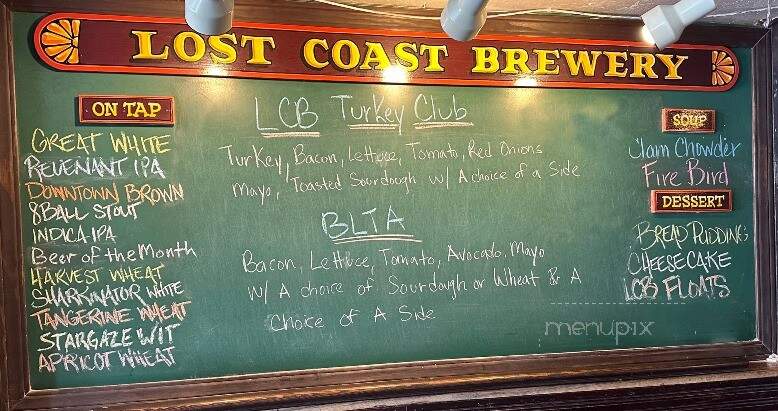 LOST COAST BREWERY
ON TAP
GREAT WHITE
REVENANT IPA
DOWNTOWN BROWN
8BALL STOUT
INDICA IPA
Beer of the Month
HARVEST WHEAT
SHARKINATOR WHITE
TANGERINE WHEAT
STARGAZE WIT
APRICOT WHEAT
LCB Turkey Club
Turkey, Bacon, Lettuce, Tomato, Red Onions
Mayo, Toasted Sourdough w/ A choice of a Side
BLTA
Bacon, Lettuce, Tomato, Avocado, Mayo
W/ A choice of Sourdough or Wheat & A
Choice of A Side
SOUP
Clam Chowder
Fire Bird
DESSERT
BREAD PUDDING
CHEESECAKE
LCB FLOATS
menupix